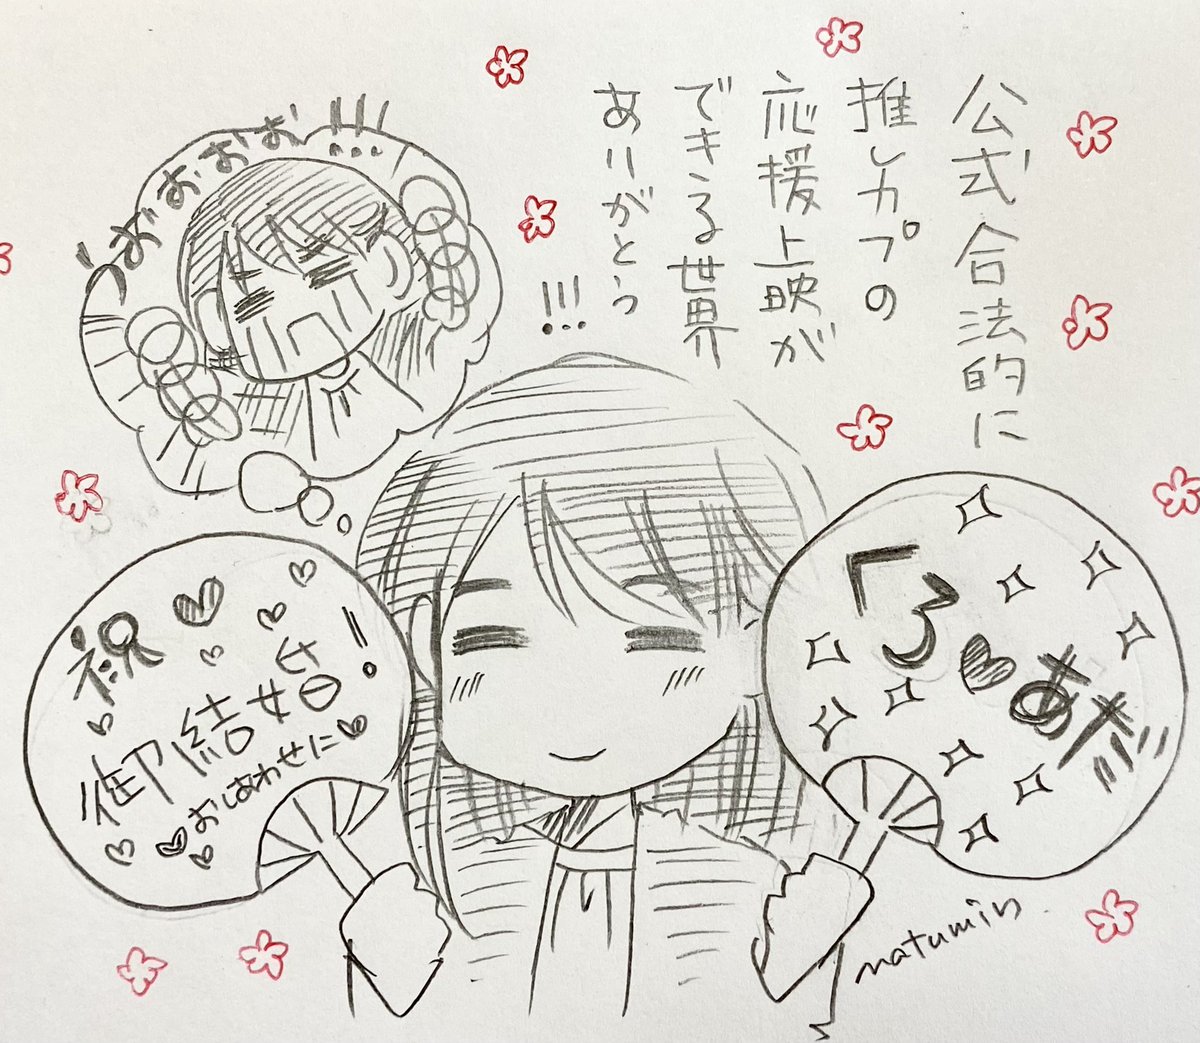 公式合法的に
推しカプの
応援上映が
できる世界
ありがとう
!!!
ゔお゛お゛お゛お゛お゛!!!
祝♥
御結婚!
♥おしあわせに♥
くろ♥あだ
natumin